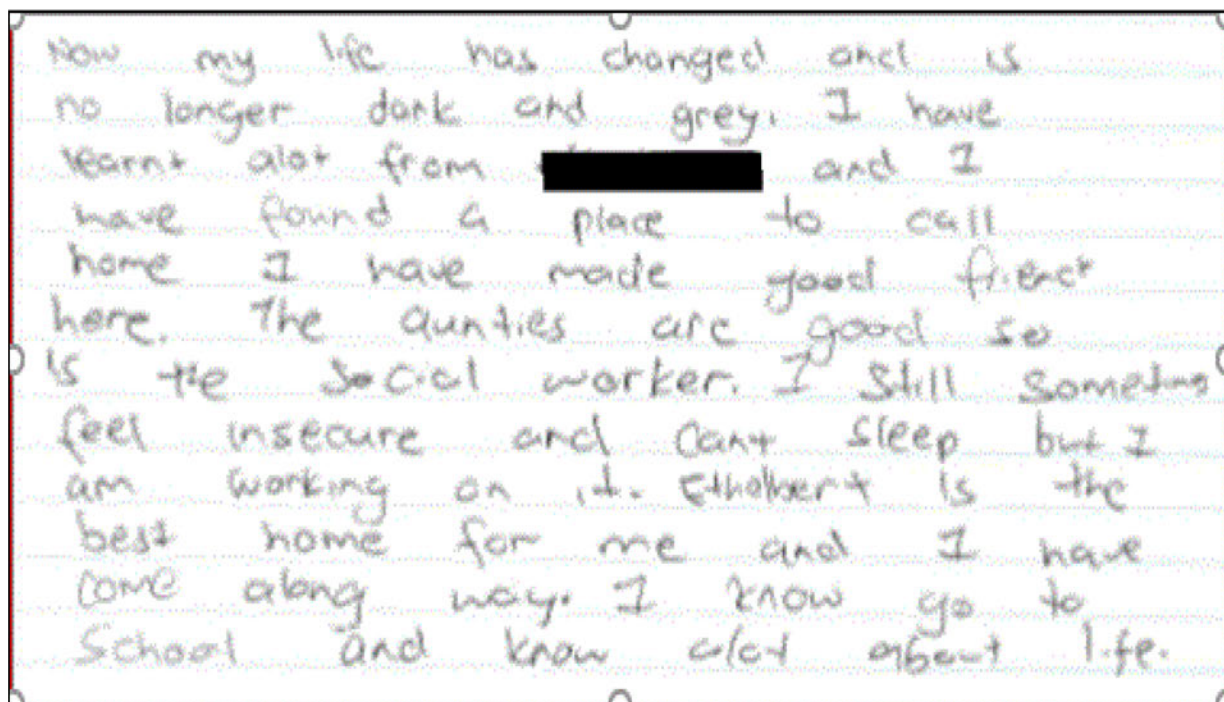 Now my life has changed and is
no longer dark and grey. I have
learnt alot from and I
have found a place to call
home I have made good friend
here. The aunties are good so
is the social worker. I still
feel insecure and cant sleep but I
am working on it. Ethelbert is the
best home for me and I have
come along way. I know go to
school and know alot about life.